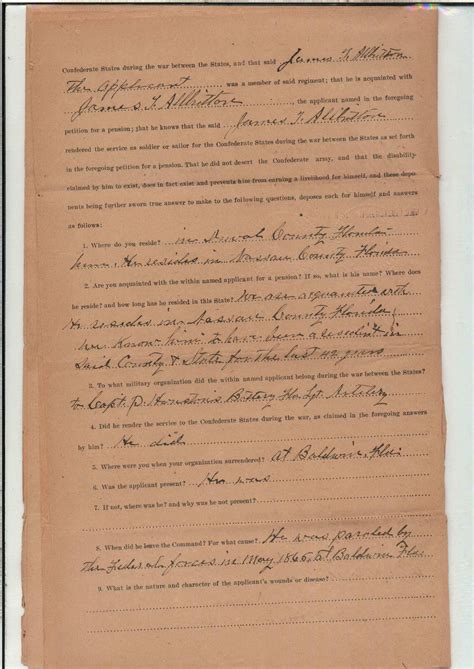 Confederate States during the war between the States, and that said James T. Allbritton
the applicant was a member of said regiment; that he is acquainted with
James T. Allbritton, the applicant named in the foregoing
petition for a pension; that he knows that the said James T. Allbritton
rendered the service as soldier or sailor for the Confederate States during the war between the States as set forth
in the foregoing petition for a pension. That he did not desert the Confederate army, and that the disability
claimed by him to exist, does in fact exist and prevents him from earning a livelihood for himself, and these depo-
nents being further sworn true answer to make to the following questions, deposes each for himself and answers
as follows:
1. Where do you reside? in Duval County Florida
He resides in Nassau County Florida
2. Are you acquainted with the within named applicant for a pension? If so, what is his name? Where does
he reside? and how long has he resided in this State? We are acquainted with
He resides in Nassau County Florida,
we know him to have been a resident in
said County & State for the last 42 years
3. To what military organization did the within named applicant belong during the war between the States?
to Capt. Battery Fla Lgt Artillery
4. Did he render the service to the Confederate States during the war, as claimed in the foregoing answers
by him? He did
5. Where were you when your organization surrendered? At Baldwin, Fla.
6. Was the applicant present? He was
7. If not, where was he? and why was he not present?
8. When did he leave the Command? For what cause? He was paroled by
the Federal forces in May 1865, at Baldwin Fla.
9. What is the nature and character of the applicant's wounds or disease?